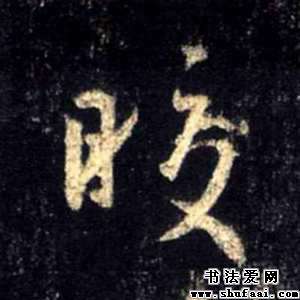 晈
书法爱网
www.shufaai.com